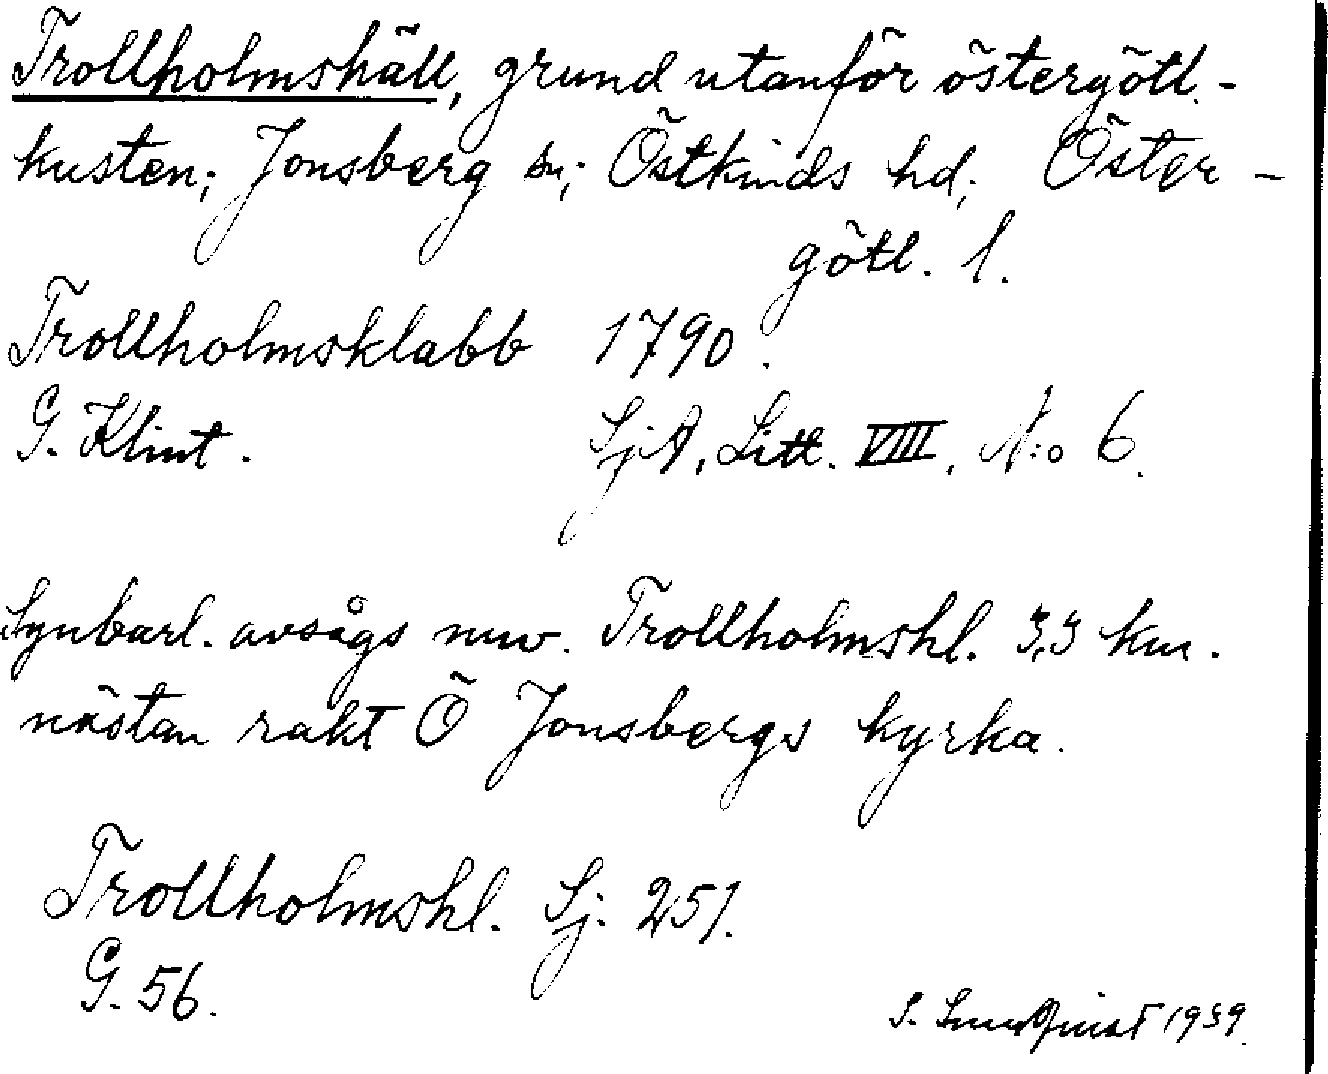 Trollholmshäll, grund utanför östergötl.-
kusten; Jonsberg sn; Östkinds hd; Öster-
götl. l.
Trollholmsklabb 1790.
G. Klint. SjA, Litt. VIII, N:o 6.
Synbarl. avsågs nuv. Trollholmshl. 3,3 km.
nästan rakt Ö Jonsbergs kyrka.
Trollholmshl. Sj. 251.
G. 56.
S. 1939.